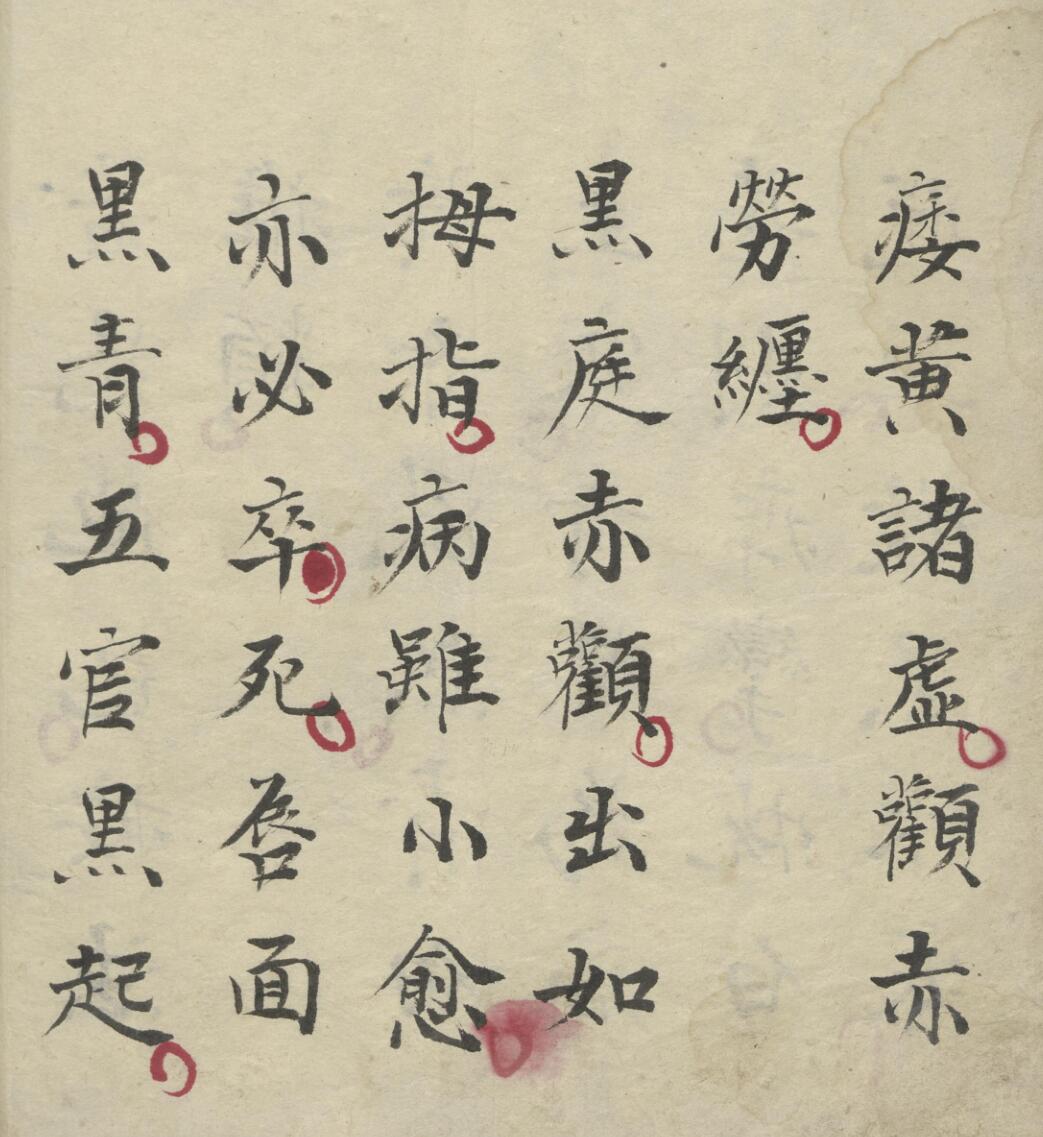 痿黃諸虚。顴赤
勞纏。
黑庭赤顴。出如
拇指。病雖小愈。
亦必卒。死。唇面
黑青。五官黑起。